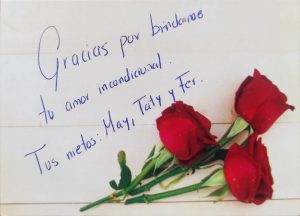 Gracias por brindarnos
tu amor incondicional.
Tus nietos: May, Taty y Fer.